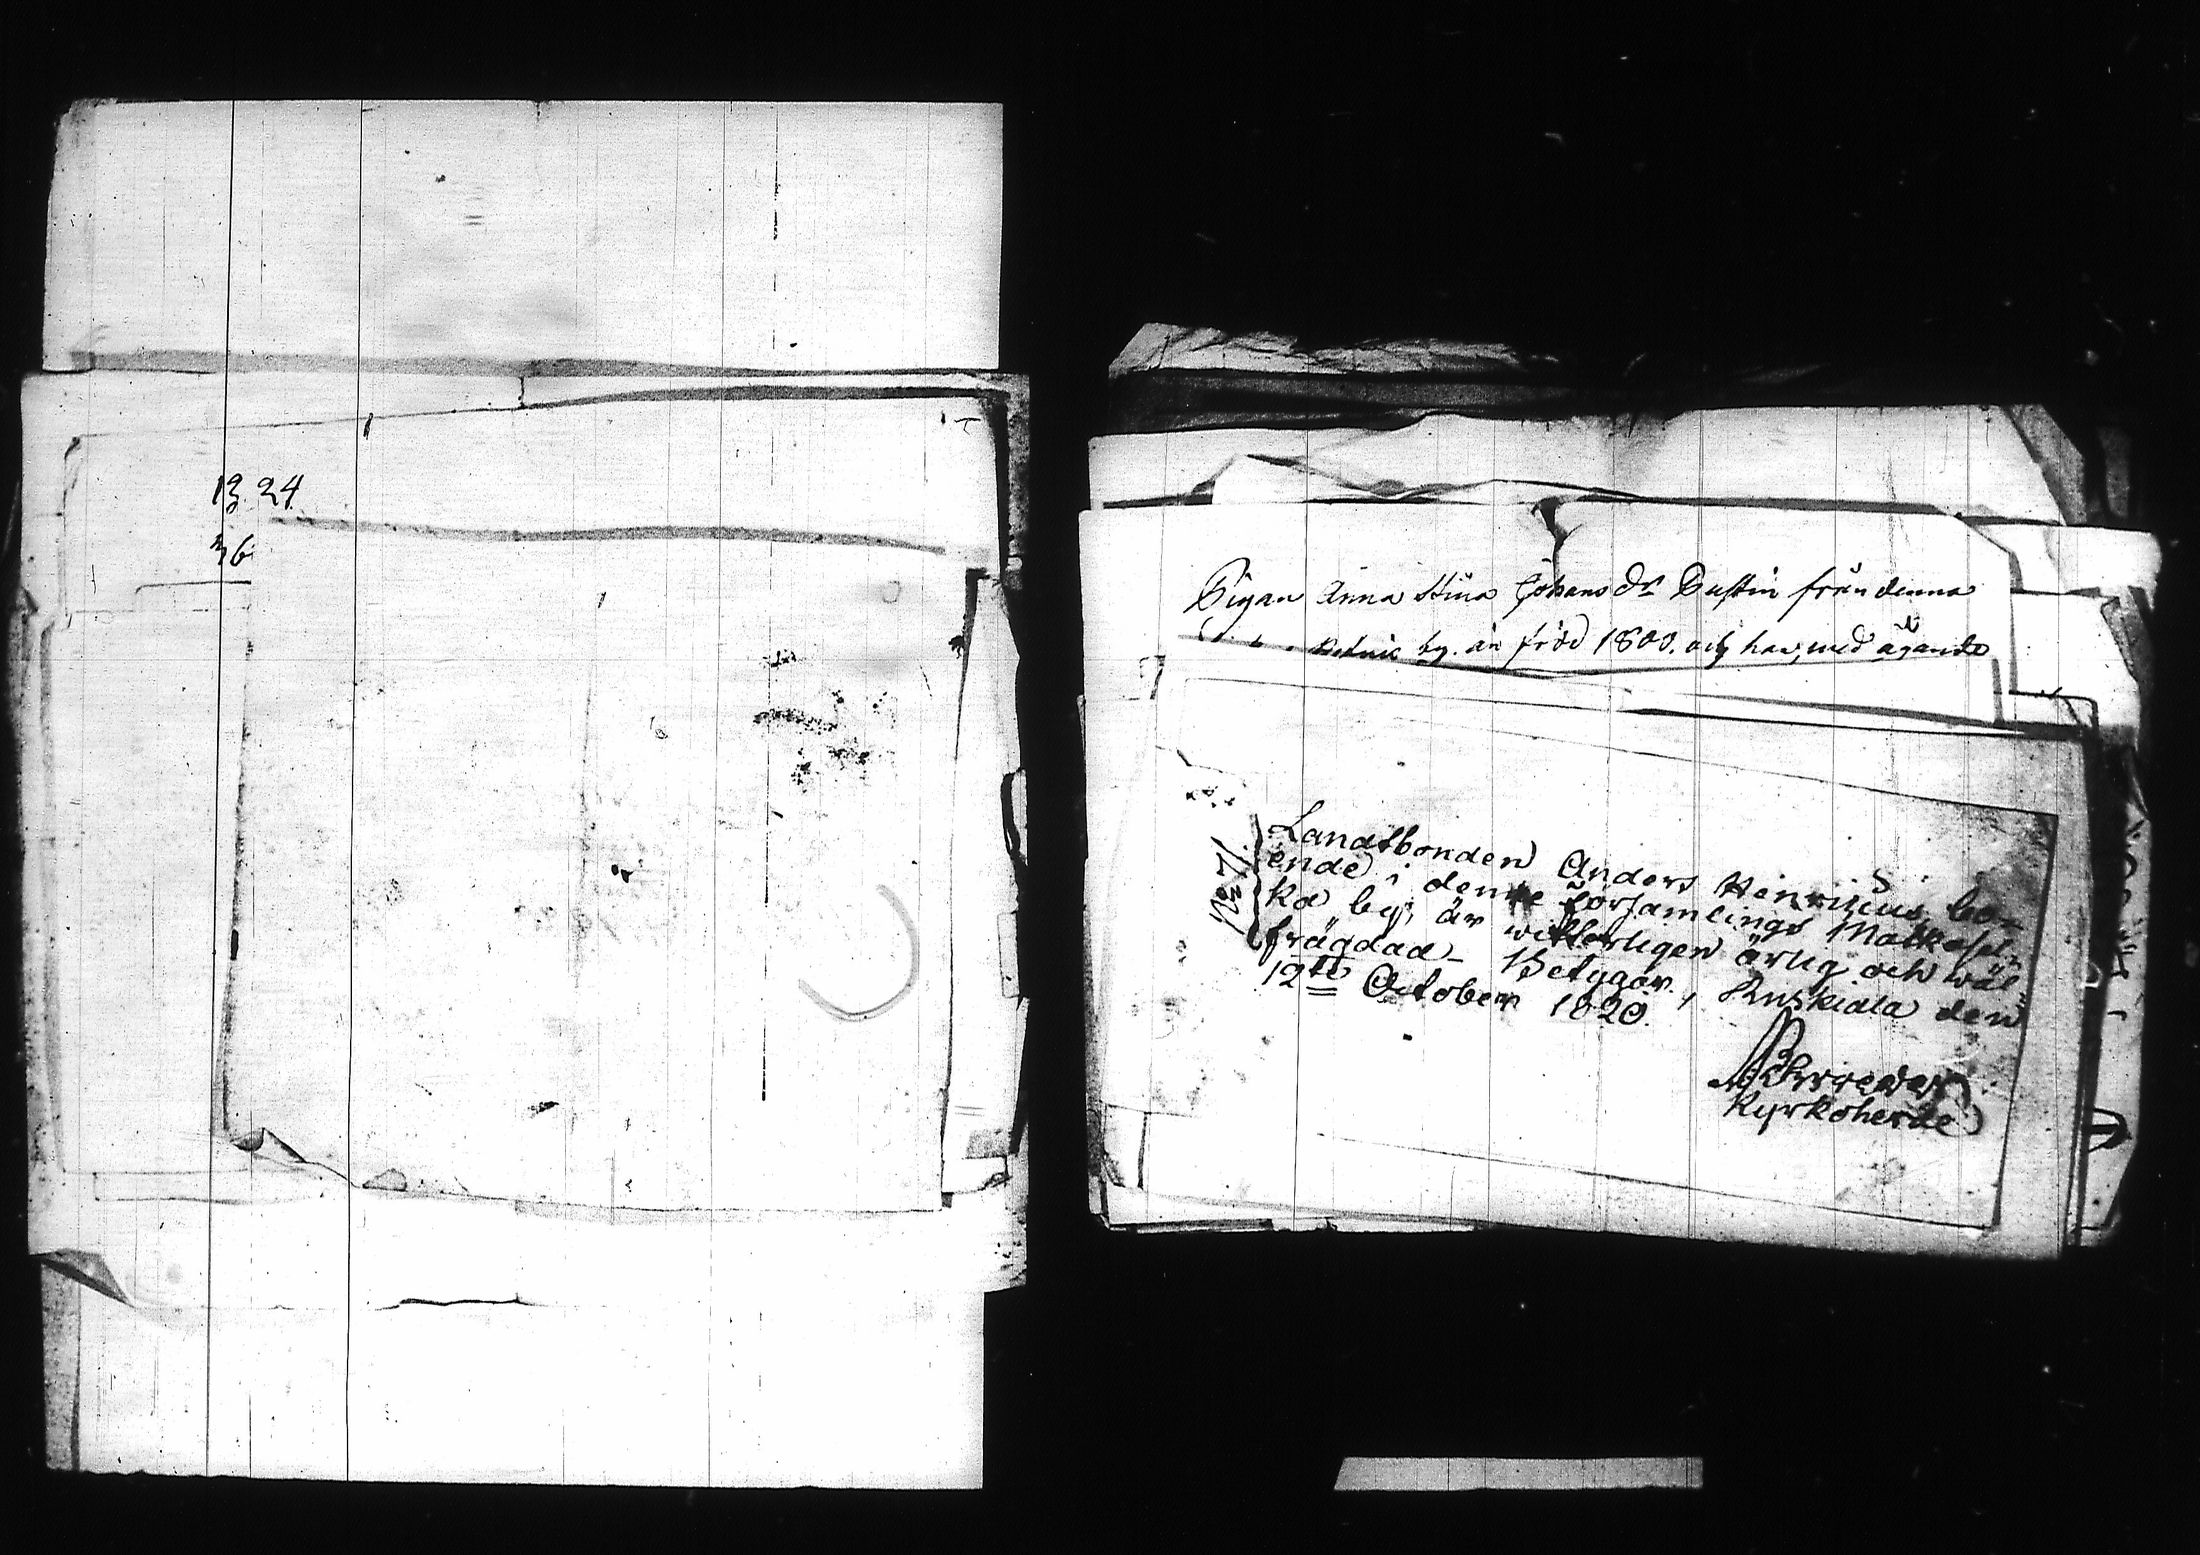 13. 24.
36
Pigan Anna Stina Johans Dr Gustin från denna
by. är född 1800. och har, med ägande
No 71.
Landtbonden Anders Henricius, bo-
ende i denne Församlings Matkasel-
kä by, är witterligen ärlig och wäl
frägdad - Betygar, Ruskiala den
12te October 1820.
Kyrkoherde